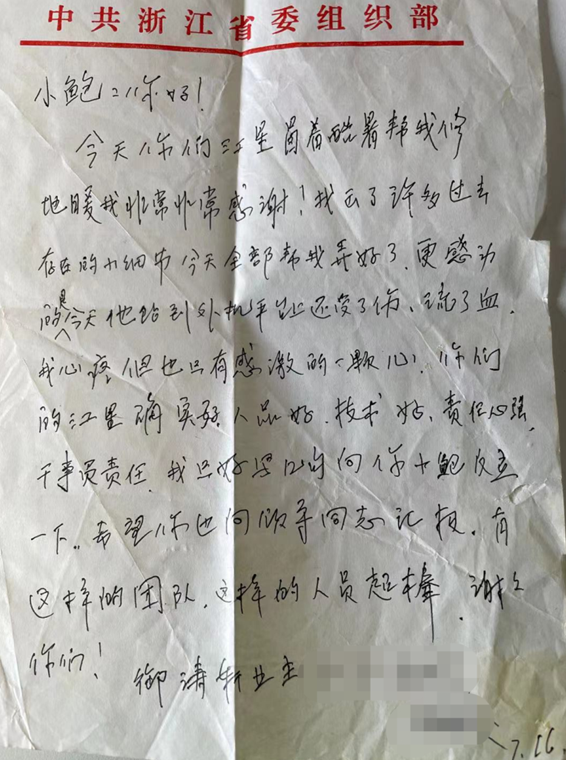 中共浙江省委组织部
小鲍：你好！
今天你们江星冒着酷暑帮我修
地暖我非常非常感谢！我云了许多过去
存在的小细节今天全部帮我弄好了.更感动
的是今天他钻到外机平台上还受了伤、流了血.
我心疼但也只有感激的一颗心.你们
的江星确实好.人品好.技术好.责任心强.
干事负责任.我只好用口向你小鲍反应
一下..希望你也向领导同志汇报.有
这样的团队.这样的人员超棒.谢之
你们！
御涛轩业主
7.16.